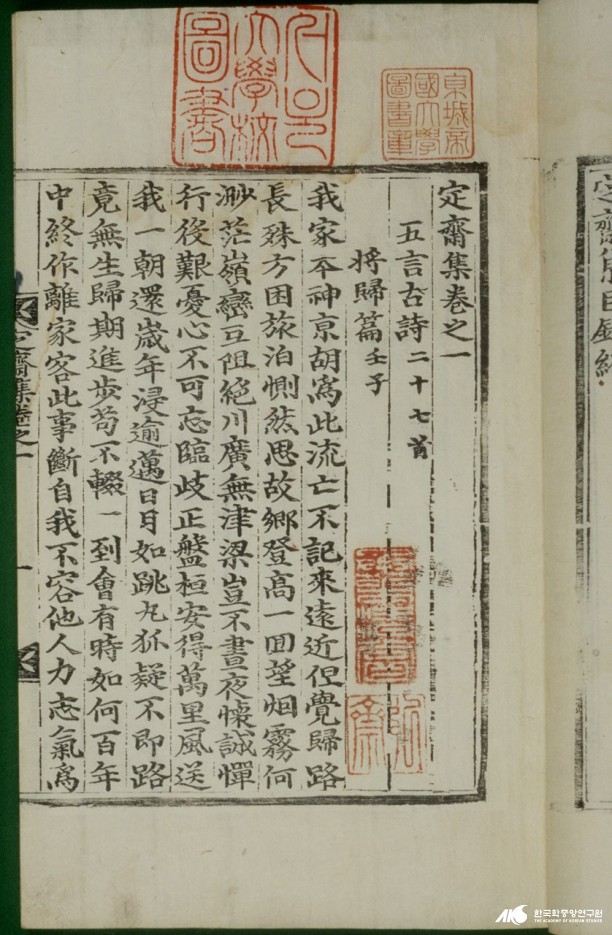 定齋集卷之一
五言古詩 二十七首
將歸篇 壬子
我家本神京胡爲此流亡不記來遠近但覺歸路
長殊方困旅泊惻然思故鄉登高一回望烟霧何
渺茫嶺巒互阻絕川廣無津梁豈不晝夜懷誠憚
行後艱憂心不可忘臨歧正盤桓安得萬里風送
我一朝還歲年浸逾邁日月如跳丸狐疑不即路
竟無生歸期進步苟不輟一到會有時如何百年
中終作離家客此事斷自我不容他人力志氣爲
定齋集卷之一
一
東城帝
國大學
圖書章
大學校
圖書
한국학중앙연구원
THE ACADEMY OF KOREAN STUDIES